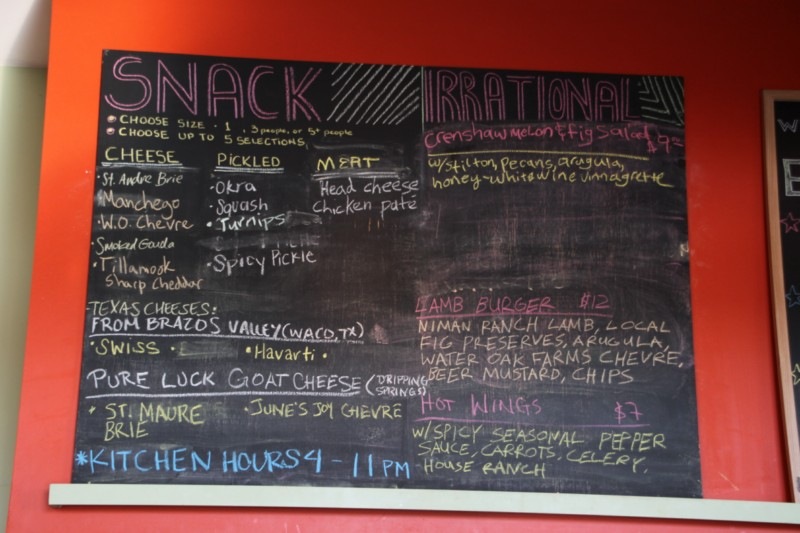 SNACK
• CHOOSE SIZE · 1, 3 people, or 5+ people
• CHOOSE UP TO 5 SELECTIONS
CHEESE
· St. Andre Brie
Manchego
· W.O. Chevre
· Smoked Gouda
· Tillamook
sharp cheddar
PICKLED
· Okra
· Squash
· Turnips
· Spicy Pickle
MEAT
Head cheese
Chicken paté
· TEXAS CHEESES:
FROM BRAZOS VALLEY (WACO, TX)
· SWISS · · Havarti ·
PURE LUCK GOAT CHEESE (DRIPPING
SPRINGS)
· ST. MAURE · JUNE'S JOY CHEVRE
BRIE
*KITCHEN HOURS 4 - 11 PM
IRRATIONAL
Crenshaw melon & fig Salad $9
w/stilton, pecans, arugula,
honey-white wine vinnagrette
LAMB BURGER $12
NIMAN RANCH LAMB, LOCAL
FIG PRESERVES, ARUGULA,
WATER OAK FARMS CHEVRE,
BEER MUSTARD, CHIPS
HOT WINGS $7
W/SPICY SEASONAL PEPPER
SAUCE, CARROTS, CELERY,
HOUSE RANCH